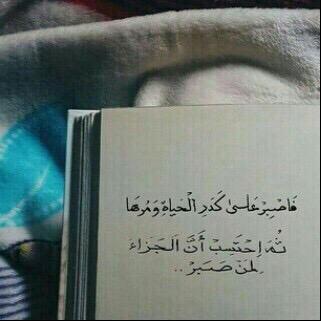 فَاصْبِرْ عَلىٰ كَدَرِ الْحَيَاةِ وَمُرهَا
ثُمَ إِحْتَسِبْ أَنَّ الْجَزَاءَ
لِمَنْ صَبَرْ ..